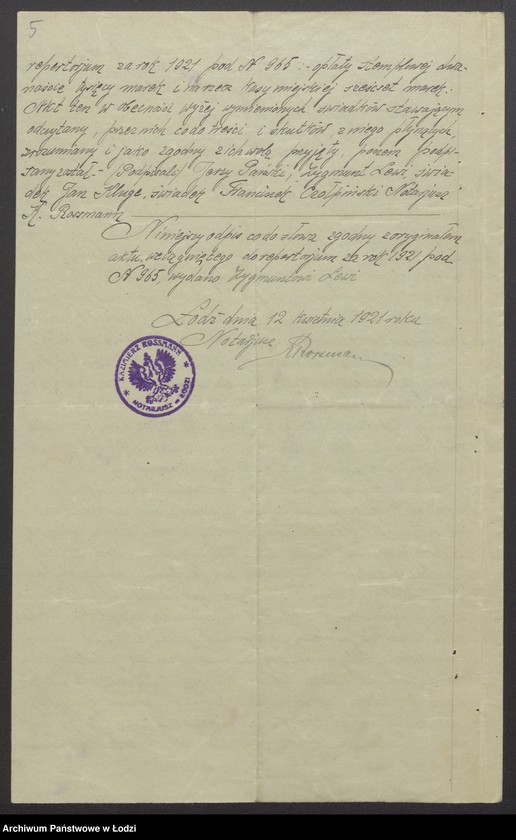 5
repertorjum za rok 1921 pod N 965 :- opłaty stemplowej dwa-
naście tysięcy marek i na rzecz kasy miejskiej sześćset marek.
Akt ten w obecności wyżej wymienionych świadków stawającym
odczytany, przez nich co do treści i skutków, z niego płynących,
zrozumiany i jako zgodny z ich wolą przyjęty, poczem podpi-
sany został.- (Podpisali) Jerzy Pański, Zygmunt Lewi, świa-
dek Jan Kluge, świadek Franciszek Czołpiński Notarjusz
K. Rossmann
Niniejszy odpis co do słowa zgodny z oryginałem
aktu, wciągniętego do repertorjum za rok 1921 pod
N 965, wydano Zygmuntowi Lewi
Łódź dnia 12 kwietnia 1921 roku
Notarjusz KRossman
KAZIMIERZ ROSSMANN
NOTARJUSZ w ŁODZI
Archiwum Państwowe w Łodzi